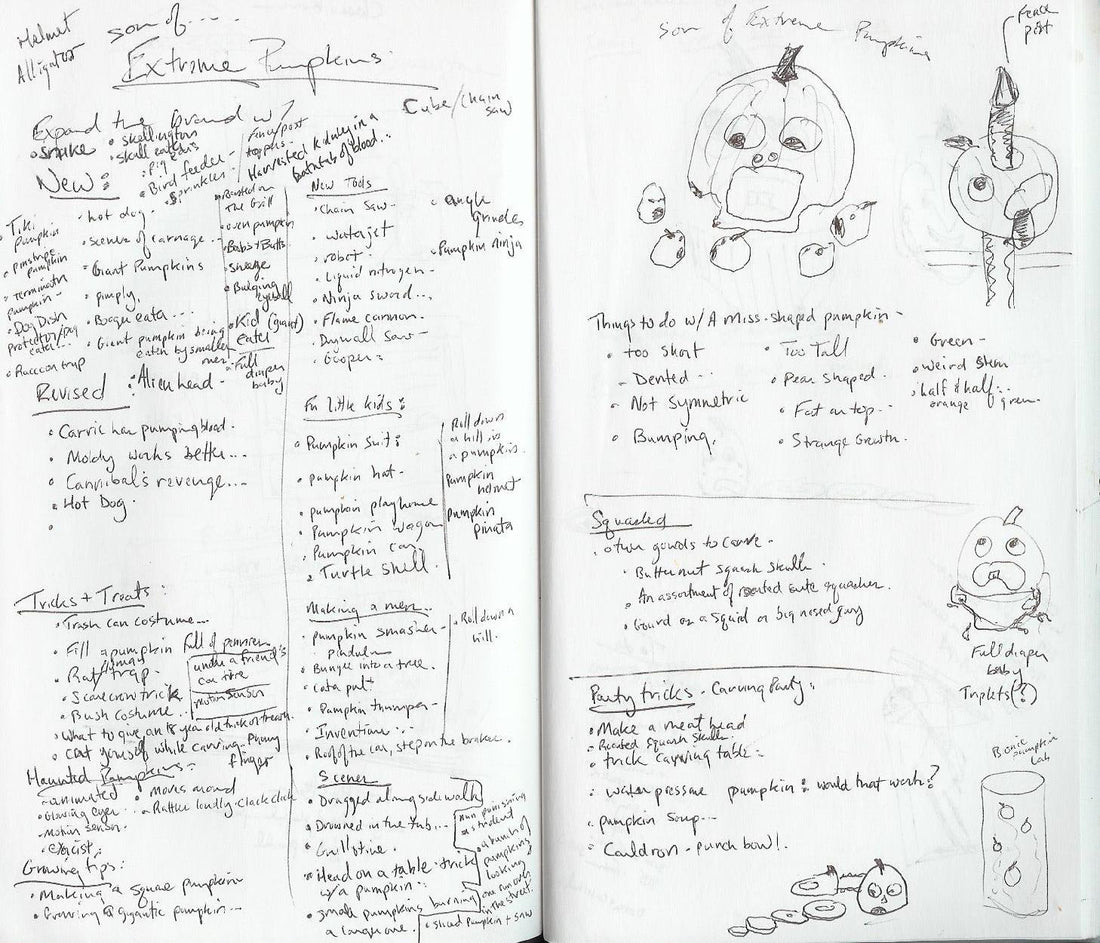 Helmet
Alligator
son of....
Extreme Pumpkins
Expand the brand w/
Cube/chain
saw
• snake
• skellington
• skull eaters
• Pig
• Bird feeder -
• Sprinkler
fence/post
toppers
Harvested kidney in a
bathtub of blood...
New:
• Tiki
Pumpkin
• Pinstripe
pumpkin
• Terminator
pumpkin -
• Dog Dish
protector/dog
eater...
• Raccoon trap
• hot dog.
• scenes of carnage...
• Giant Pumpkins
• pimply.
• Booger eater...
• Giant pumpkin being
eaten by smaller
ones.
• Alien head -
• Roasted on
The Grill
• oven pumpkin
• Bulging
eyeball
• Kid (guard)
eater
• Full
diaper
baby
New Tools
• Chain Saw-
• waterjet
• robot.
• Liquid nitrogen-
• Ninja sword...
• Flame cannon.
• Drywall Saw-
• angle
grinder
• Pumpkin ninja
Revised
• Moldy works better...
• Cannibal's revenge...
• Hot Dog.
For little kids:
• Pumpkin suit:
• pumpkin hat-
• pumpkin playhouse
• Pumpkin wagon
• Pumpkin car
• Turtle shell.
Roll down
a hill in
a pumpkin.
Pumpkin
helmet
Pumpkin
pinata
Tricks + Treats:
• Trash can costume...
• Fill a pumpkin
• Rat/human
trap.
• Scarecrow trick
• Bush costume...
under a friend's
car tire
motion sensor
• What to give an 18 year old trick or treater.
• Cut yourself while carving. Phony
finger
Making a mess...
• pumpkin smasher-
pendulum
• Bungee into a tree.
• catapult
• Pumpkin thumper-
• Inventions:
• Roof of the car, step on the brakes.
• Roll down
hill.
Haunted Pumpkins:
• animated
• Glowing eyes.
• Motion sensor.
• exorcist:
• moves around
• Rattles loudly-clack clack
Growing tips:
• Making a square pumpkin
• Growing a gigantic pumpkin...
Scenes
• Dragged along sidewalk
• Drowned in the tub...
• Guillotine.
• Head on a table-trick
w/a pumpkin:
• small pumpkins burning
a large one.
• a bunch of
pumpkins
looking @
one run over
in the street.
• sliced pumpkin + saw
son of Extreme Pumpkins
Fence
post
Things to do w/ A miss-shaped pumpkin-
• too short
- Dented..
• Not Symmetric
• Bumping.
• Too Tall
• Pear Shaped.
• Fat on top..
• Strange Growth.
• Green-
• weird stem
• half & half:
orange green.
Squashed
• other gourds to carve-
• Butternut squash skull.
• An assortment of roasted cute squashes.
• Gourd as a squid or big nosed guy
Full diaper
baby
Triplets(?)
Party tricks - Carving Party:
• Make a meat head
• Roasted Squash Skull
• trick carving table:
• water pressure pumpkin: would that work?
• pumpkin soup...
• Cauldron-punch bowl!.
Bonic
pumpkin
Lab